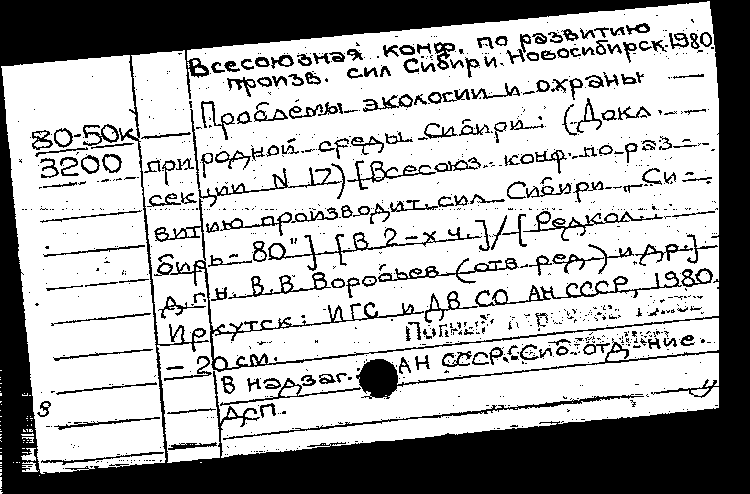 Всесоюзная конф. по развитию
произв. сил Сибири. Новосибирск. 1980
80-50к
3200
Проблемы экологии и охраны
природной среды Сибири: (Докл.
секции N 17) [Всесоюз. конф. по раз-
витию производит. сил Сибири „Си-
бирь-80"] [В 2-х ч.] / [Редкол.:
д.г.н. В.В. Воробьев (отв. ред.) и др.]
Иркутск: ИГС и ДВ СО АН СССР, 1980.
Полный перечень
- 20 см.
В надзаг.: АН СССР. Сиб. отд-ние.
ДСП.
8
у